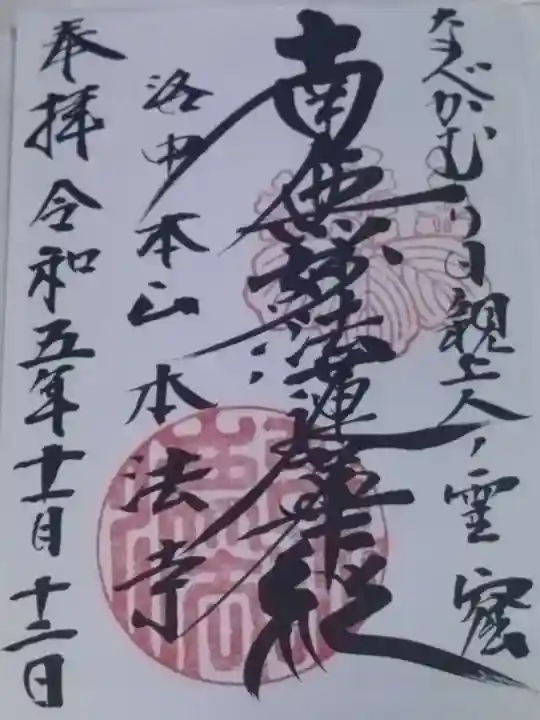 なべかむり日親上人ノ霊窟
南無妙法蓮華経
洛中本山本法寺
奉拝令和五年十一月十二日